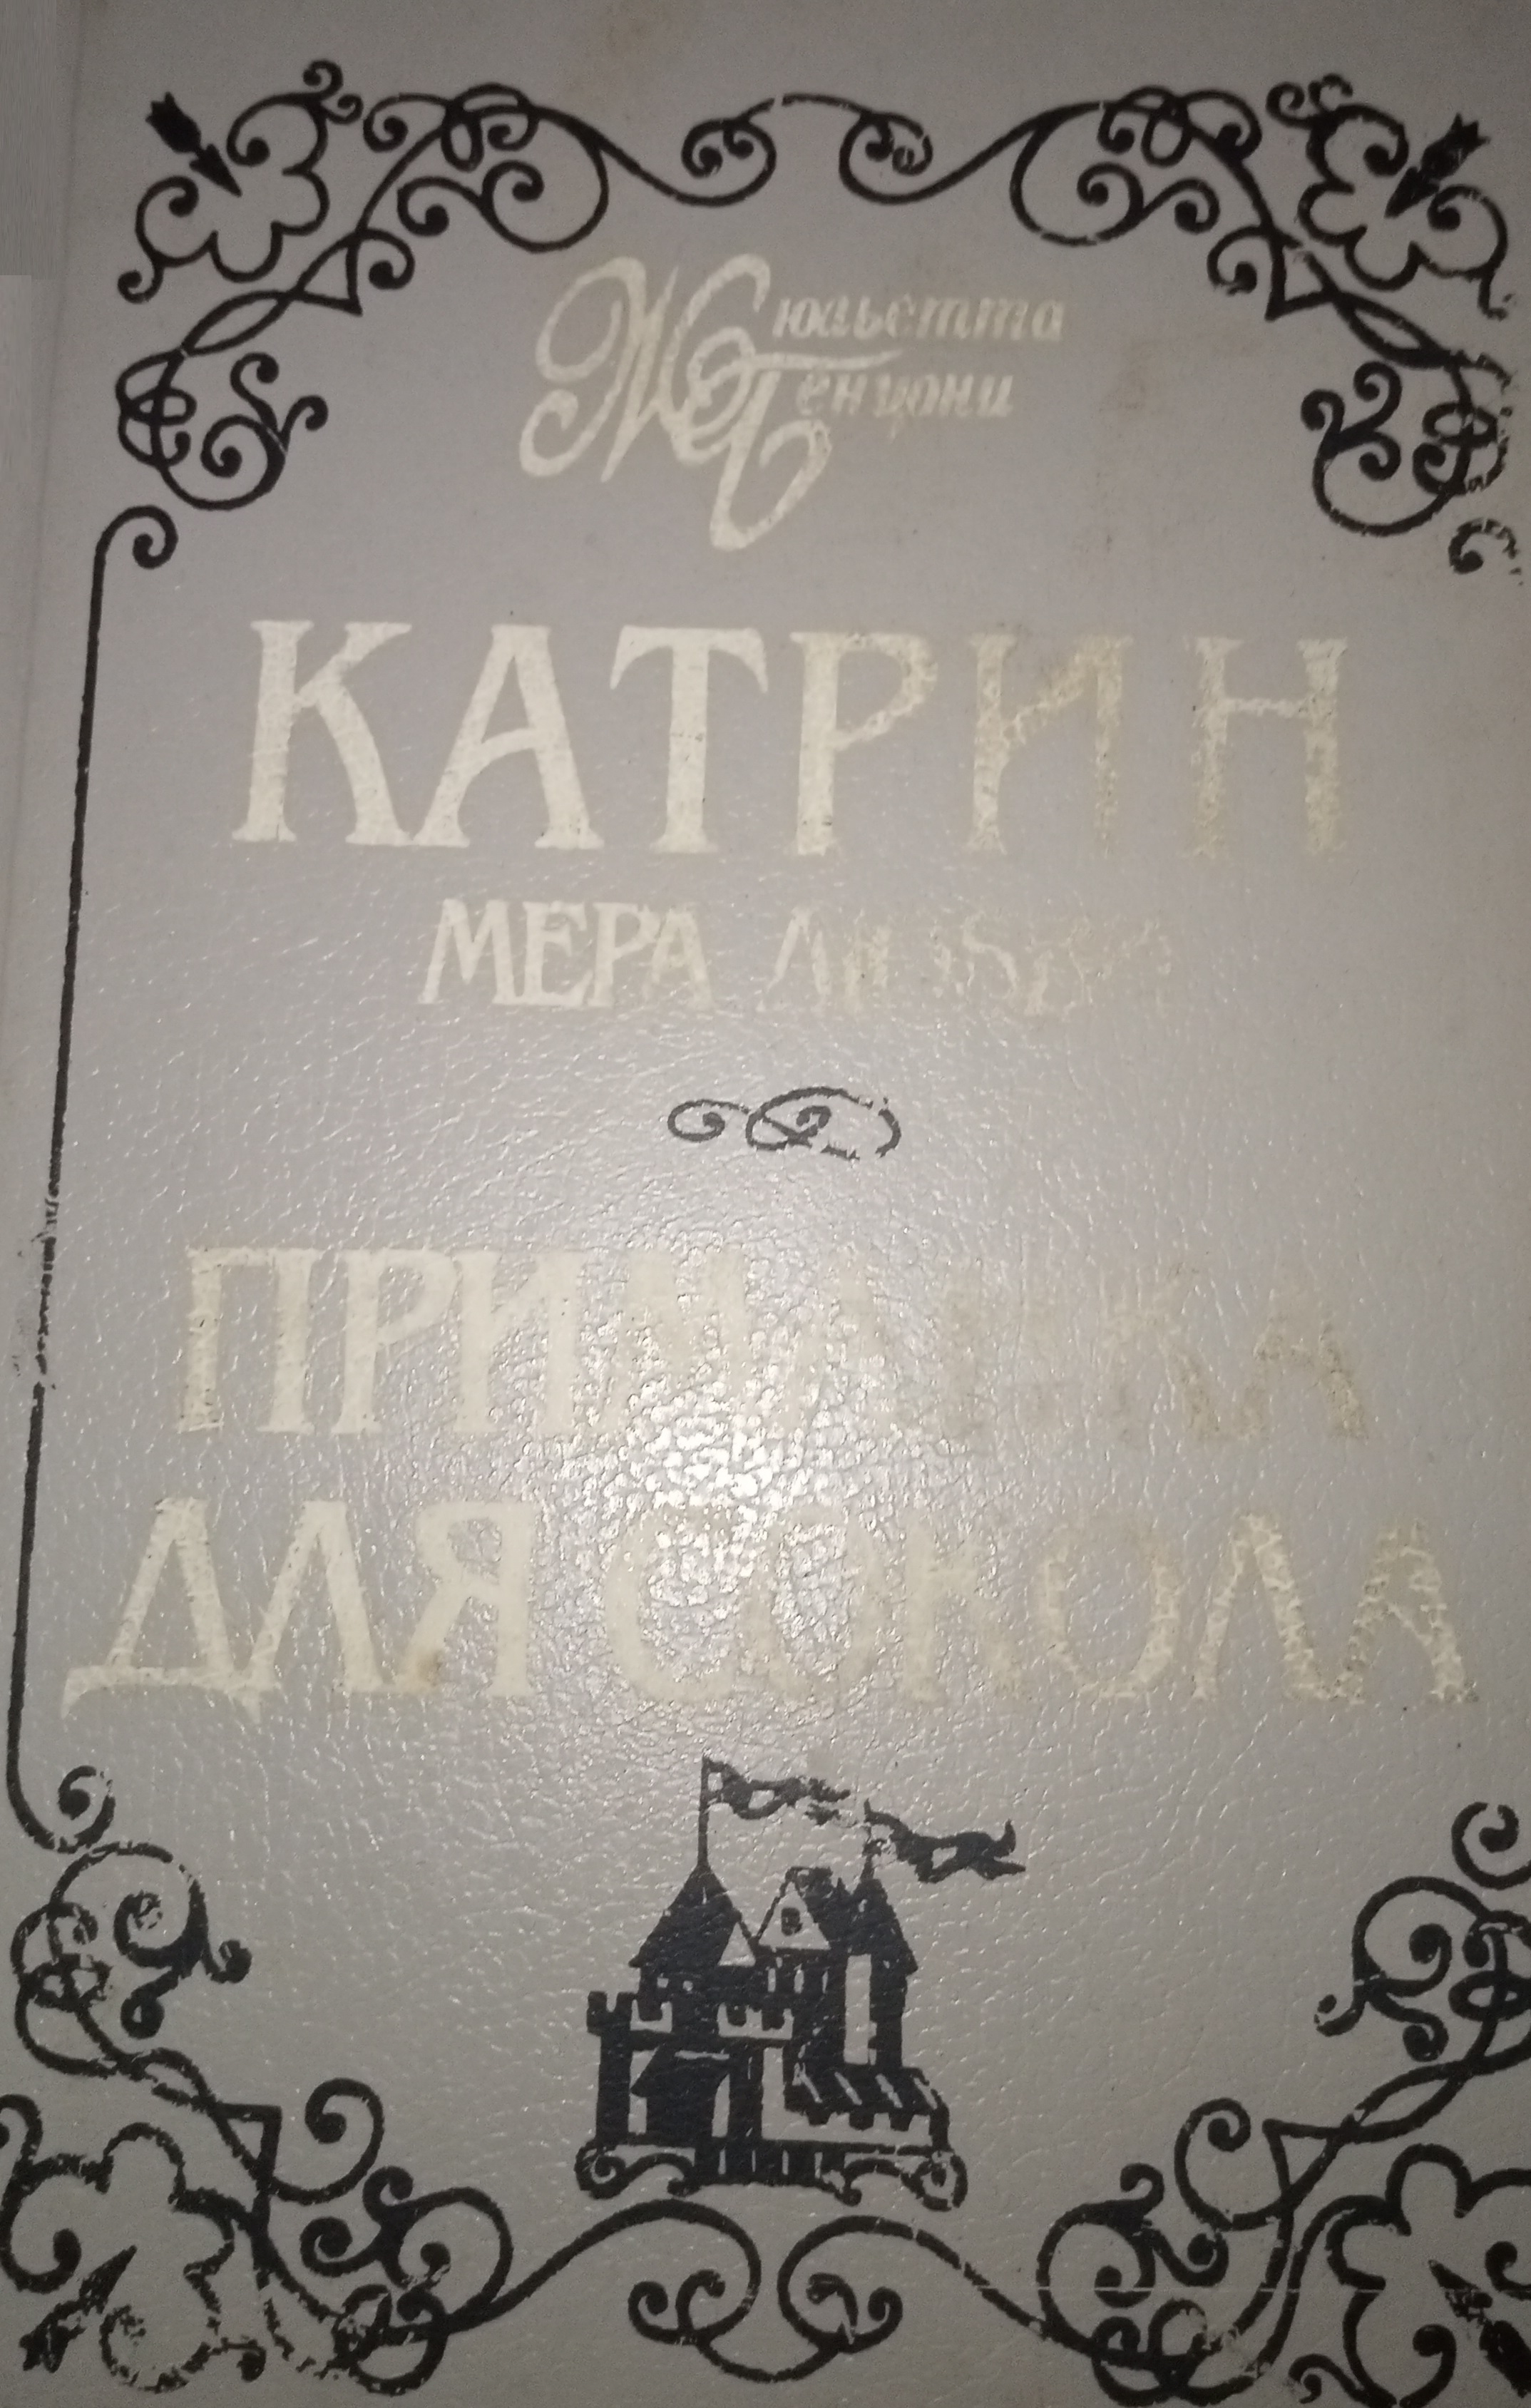 Жюльетта
Бенцони
КАТРИН
МЕРА ЛЮБВИ
ПРИМАНКА
ДЛЯ СОКОЛА